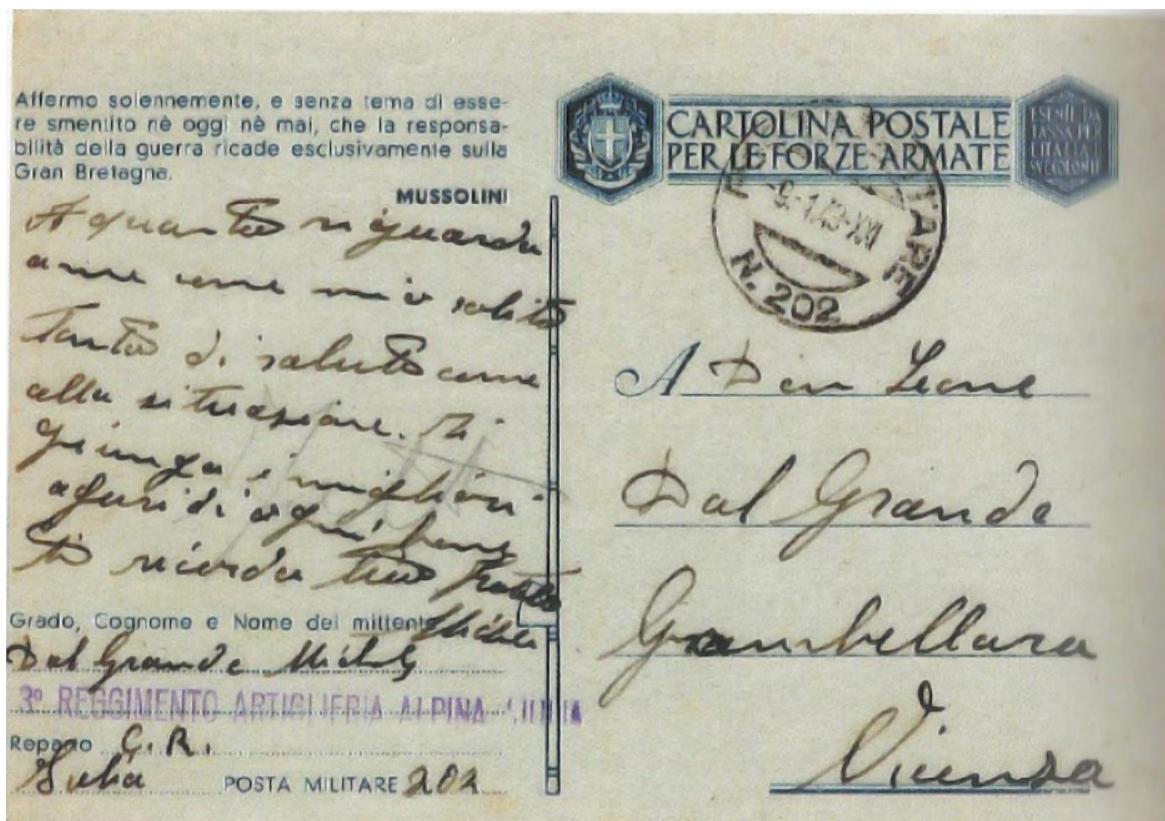 Affermo solennemente, e senza tema di esse-
re smentito nè oggi nè mai, che la responsa-
bilità della guerra ricade esclusivamente sulla
Gran Bretagna.
MUSSOLINI
A quanto riguarda
a me come mio solito
Tanto di saluto come
alla situazione. Ti
giunga i migliori
aguri di ogni bene
ti ricorda tuo fratello
Michele
Grado, Cognome e Nome del mittente
Dal Grande Michele
3° REGGIMENTO ARTIGLIERIA ALPINA JULIA
Reparto C. R.
Julia POSTA MILITARE 202
CARTOLINA POSTALE
PER LE FORZE ARMATE
ESENTE DA
TASSA PER
L'ITALIA
SUE COLONIE
-9.-1.43-XXI
N. 202
A Don Leone
Dal Grande
Gambellara
Vicenza